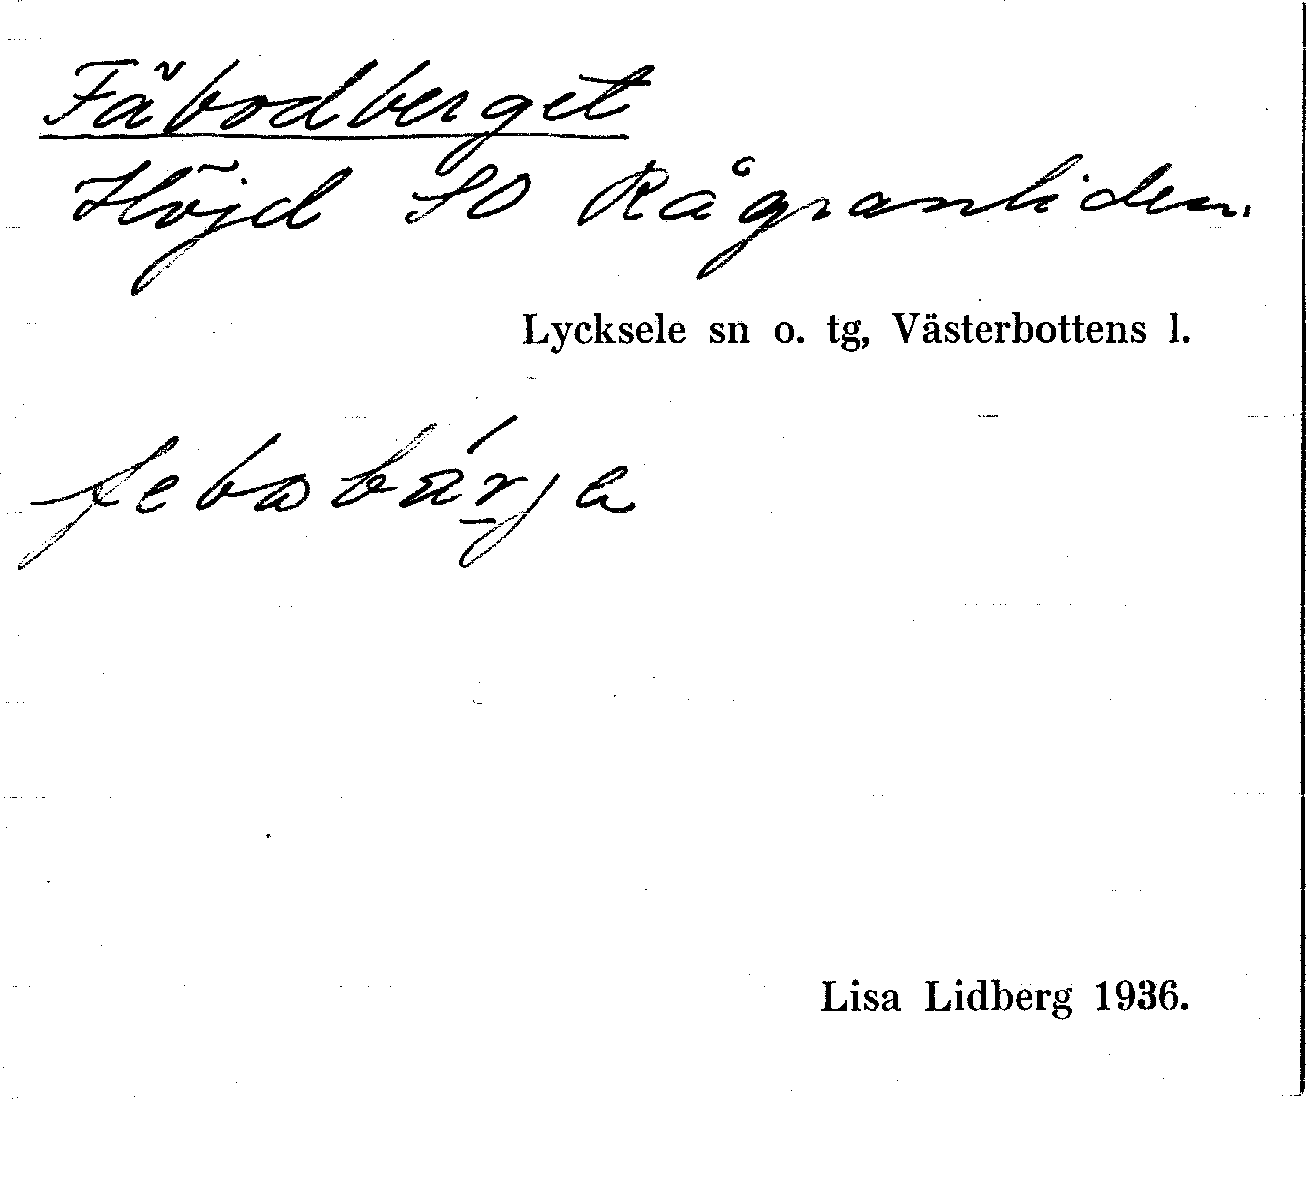 Fäbodberget
Höjd SO Rågranliden.
Lycksele sn o. tg, Västerbottens l.
febωbárja
Lisa Lidberg 1936.